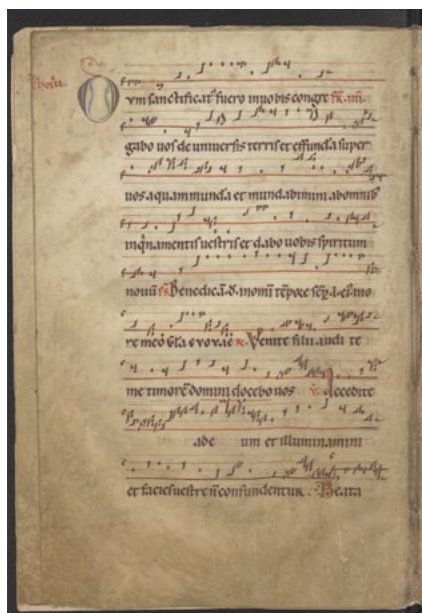 um sanctificat' fuero in vobis congre
gabo vos de universis terris et effundā super
vos aquam mundā et mundabimini abomnib'
inqnamentis vestris et dabo vobis spiritum
novū Benedic
Venite filii audi te
me timorē domini docebo vos Accedite
ade um et illuminamini
et facies vestre n̄ confundentur Beata